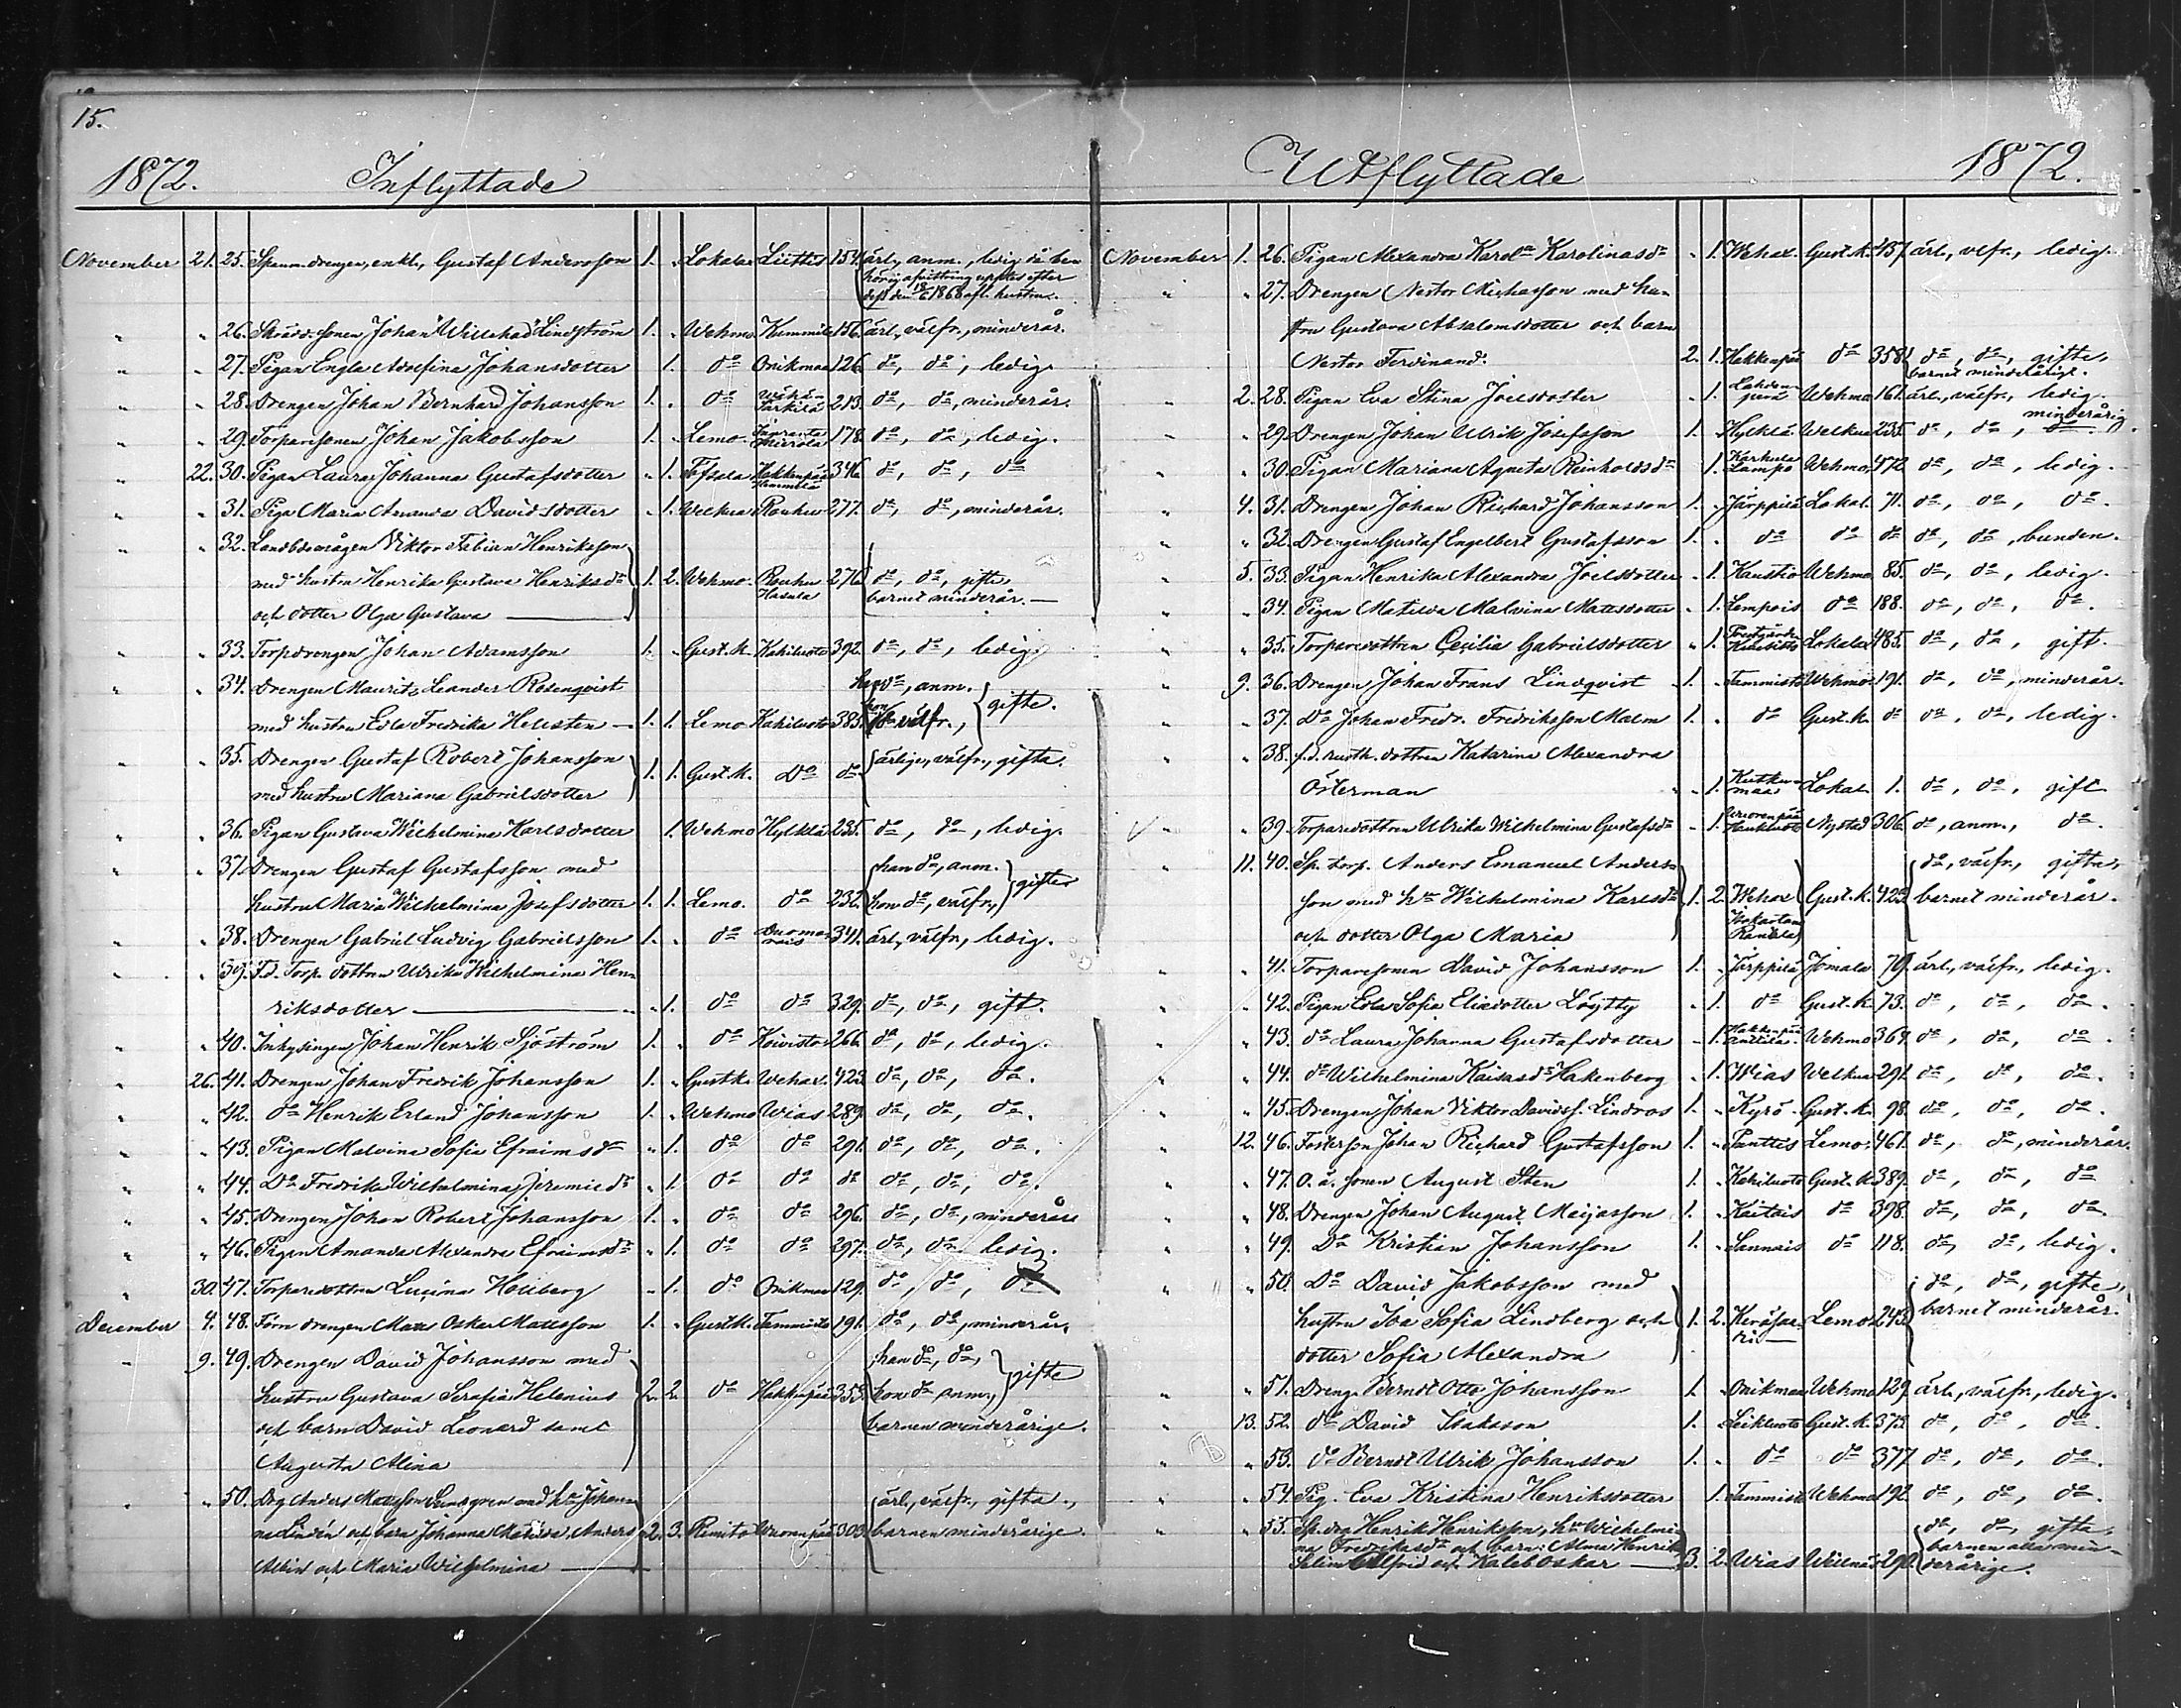 15.
1872. Inflyttade
November 21. 25. Spanm. drengen, enkl., Gustaf Andersson 1. „ Lokalax Liettis 154. ärl., anm., ledig då ben
hörig afvittring uppter efter
dess den 18/6 1868 afl. hustru.
„ „ 26. Skrädd. sonen Johan Willehad Lindström 1. „ Wehmo Kummila 156. ärl., välfr., minderår.
„ „ 27. Pigan Engla Adolfina Johansdotter 1. do Onikmaa 126. do, do, ledig.
„ „ 28. Drengen Johan Bernhard Johansson 1. „ do Wähä-
Tarkila 213. do, do, minderår.
„ „ 29. Torparesonen Johan Jakobsson 1. „ Lemo 178. do, do, ledig.
„ 22. 30. Pigan Laura Johanna Gustafsdotter „ 1. Töfsala Hakkenpää
Hemmilä 346. do, do, do
„ „ 31. Piga Maria Amanda Davidsdotter „ 1. Welkua Rouhu 277. do, do, minderår.
„ „ 32. Landbdrängen Viktor Fabian Henriksson
med hustru Henrika Gustava Henriksdr 1. 2. Wehmo. Rouhu
Hasula 276. do, do, gifta,
barnet minderår.
och dotter Olga Gustava
„ „ 33. Torpdrengen Johan Adamsson 1. „ Gust. k. Kahiluoto 392. do, do, ledig.
„ „ 34. Drengen Maurits Leander Rosenqvist han do, anm.
med hustru Eva Fredrika Hellsten 1. 1. Lemo Kahiluoto 385. hon do välfr., gifte.
„ „ 35. Drengen Gustaf Robert Johansson
med hustru Mariana Gabrielsdotter 1. 1. Gust. k. Do do ärlige, välfr., gifta.
„ „ 36. Pigan Gustava Wilhelmina Karlsdotter 1. Wehmo Hylkilä 235. do, do, ledig.
„ „ 37. Drengen Gustaf Gustafsson med han do, anm.
hustru Maria Wilhelmina Josefsdotter 1. 1. Lemo. do 232. hon do, välfr., gifter
„ „ 38. Drengen Gabriel Ludvig Gabrielsson 1. „ do 341. ärl., välfr., ledig.
„ „ 39. F.d. Torp. dottren Ulrika Wilhelmina Hen
riksdotter „ 1. do do 329. do, do, gift.
„ „ 40. Inhysingen Johan Henrik Sjöström 1. „ do Koivisto 266. do, do, ledig.
„ 26. 41. Drengen Johan Fredrik Johansson 1. „ Gustk. Wehax. 423. do, do, do.
„ „ 42. do Henrik Erland Johansson 1. „ Wehmo Wias 289. do, do, do.
„ „ 43. Pigan Malvina Sofia Efraimsdr „ 1. do do 291. do, do, do.
„ „ 44. Do Fredrika Wilhelmina Jeremiedr „ 1. do do do do, do, do.
„ „ 45. Drengen Johan Robert Johansson 1. „ do do 296. do, do, minderår.
„ „ 46. Pigan Amanda Alexandra Efraimsdr „ 1. do do 297. do, do ledig.
„ 30. 47. Torparedottren Lucina Hollberg „ 1. do Onikmaa 129. do, do, do
December 4. 48. Förn drengen Mats Oskar Matsson 1. „ Gustk. Tammisto 191. do, do, minderår.
„ 9. 49. Drengen David Johansson med han do, do,
hustru Gustava Serafia Helenius 2. 2. do Hakkenpää 353. hon do anm., gifte
och barn David Leonard samt barnen minderårige.
Augusta Alina
„ „ 50. Drg Anders Mattsson Sundgren med ha Johan
na Lindén och barn Johanna Matilda, Anders 2. 3. Rimito Wuorenpää 303. ärl., välfr., gifta,
barnen minderårige.
Albin och Maria Wilhelmina
Utflyttade 1872.
November 1. 26. Pigan Alexandra Karolina Karolinasdr „ 1. Wehax. Gust. k. 437. ärl., vlfr., ledig.
„ „ 27. Drengen Nestor Michasson med hu-
stru Gustava Absalomsdotter och barn
Nestor Ferdinand. 2. 1. Hakkenpää do 358. do, do, gifte,
barnet minderårigt.
„ 2. 28. Pigan Eva Stina Joelsdotter „ 1. Lahden-
perä Wehmo 161. ärl., välfr., ledig.
„ „ 29. Drengen Johan Ulrik Josefsson 1. „ Hylkilä Welkua 235. do, do, do. minderårig
„ „ 30. Pigan Mariana Agneta Reinholdsdr 1. Karhula
Lampo Wehmo 472. do, do, ledig.
„ 4. 31. Drengen Johan Richard Johansson 1. „ Järppilä Lokal. 71. do, do, do.
„ „ 32. Drengen Gustaf Engelbert Gustafsson 1. „ do do do do, do, bunden.
„ 5. 33. Pigan Henrika Alexandra Joelsdotter „ 1. Kaustio Wehmo 85. do, do, ledig.
„ „ 34. Pigan Matilda Malvina Mattsdotter „ 1. Lempois do 188. do, do, do.
„ „ 35. Torparedottren Cecilia Gabrielsdotter „ 1. Lokalax 485. do, do, gift.
„ 9. 36. Drengen Johan Frans Lindqvist 1. „ Tammisto Wehmo 191. do, do, minderår.
„ „ 37. Do Johan Fredr. Fredriksson Malm 1. „ do Gust. k. do do, do, ledig.
„ „ 38. f.d. rusth. dottren Katarina Alexandra
Österman „ 1. Kutku-
maa Lokal. 1. do, do, gift
„ „ 39. Torparedottren Ulrika Wilhelmina Gustafsdr „ 1. Nystad 306. do, anm., do.
„ 11. 40. Sp. torp. Anders Emanuel Anders-
son med ha Wilhelmina Karlsdr 1. 2. Wehax Gust. k. 425. do, välfr., gifta,
barnet minderår.
och dotter Olga Maria
„ „ 41. Torparesonen David Johansson 1. „ Järppilä Jomala 79. ärl., välfr., ledig.
„ „ 42. Pigan Eva Sofia Eliedotter Löytty „ 1. do Gust. k. 73. do, do, do.
„ „ 43. do Laura Johanna Gustafsdotter „ 1. Hakkenpää
Anttila. Wehmo 369. do, do, do.
„ „ 44. do Wilhelmina Kaisasdr Hakenberg „ 1. Wias Welkua 291. do, do, do.
„ „ 45. Drengen Johan Viktor Davidss. Lindros 1. „ Kyrö Gust. k. 98. do, do, do.
„ 12. 46. Fosterson Johan Richard Gustafsson 1. „ Panttis Lemo. 461. do, do, minderår.
„ „ 47. O. ä. sonen August Sten 1. „ Kahiluoto Gust. k. 389. do, do, do
„ „ 48. Drengen Johan August Maijasson 1. „ Kaitais do 398. do, do, do.
„ „ 49. Do Kristian Johansson 1. „ Sannais do 118. do, do, ledig.
„ „ 50. Do David Jakobsson med do, do, gifte,
hustru Ida Sofia Lindberg och 1. 2. Lemo 245. barnet minderår.
dotter Sofia Alexandra
„ „ 51. Dreng. Berndt Otto Johansson 1. „ Onikmaa Wehmo 129. ärl., välfr., ledig.
„ 13. 52. do David Isaksson 1. „ Leikluoto Gust. k. 373. do, do, do.
„ „ 53. do Berndt Ulrik Johansson 1. „ do do 377 do, do, do.
„ „ 54. Pig. Eva Kristina Henriksdotter 1. Tammisto Wehmo 192. do, do, do.
„ „ 55. Sp. drg Henrik Henriksson, hu Wilhelmi-
na Fredrikasdr och barn: Alma Henrika
Selim Alfrid och Kaleb Oskar 3. 2. Wias Willnäs 290. do, do, gifta,
barnen alla min-
derårige.